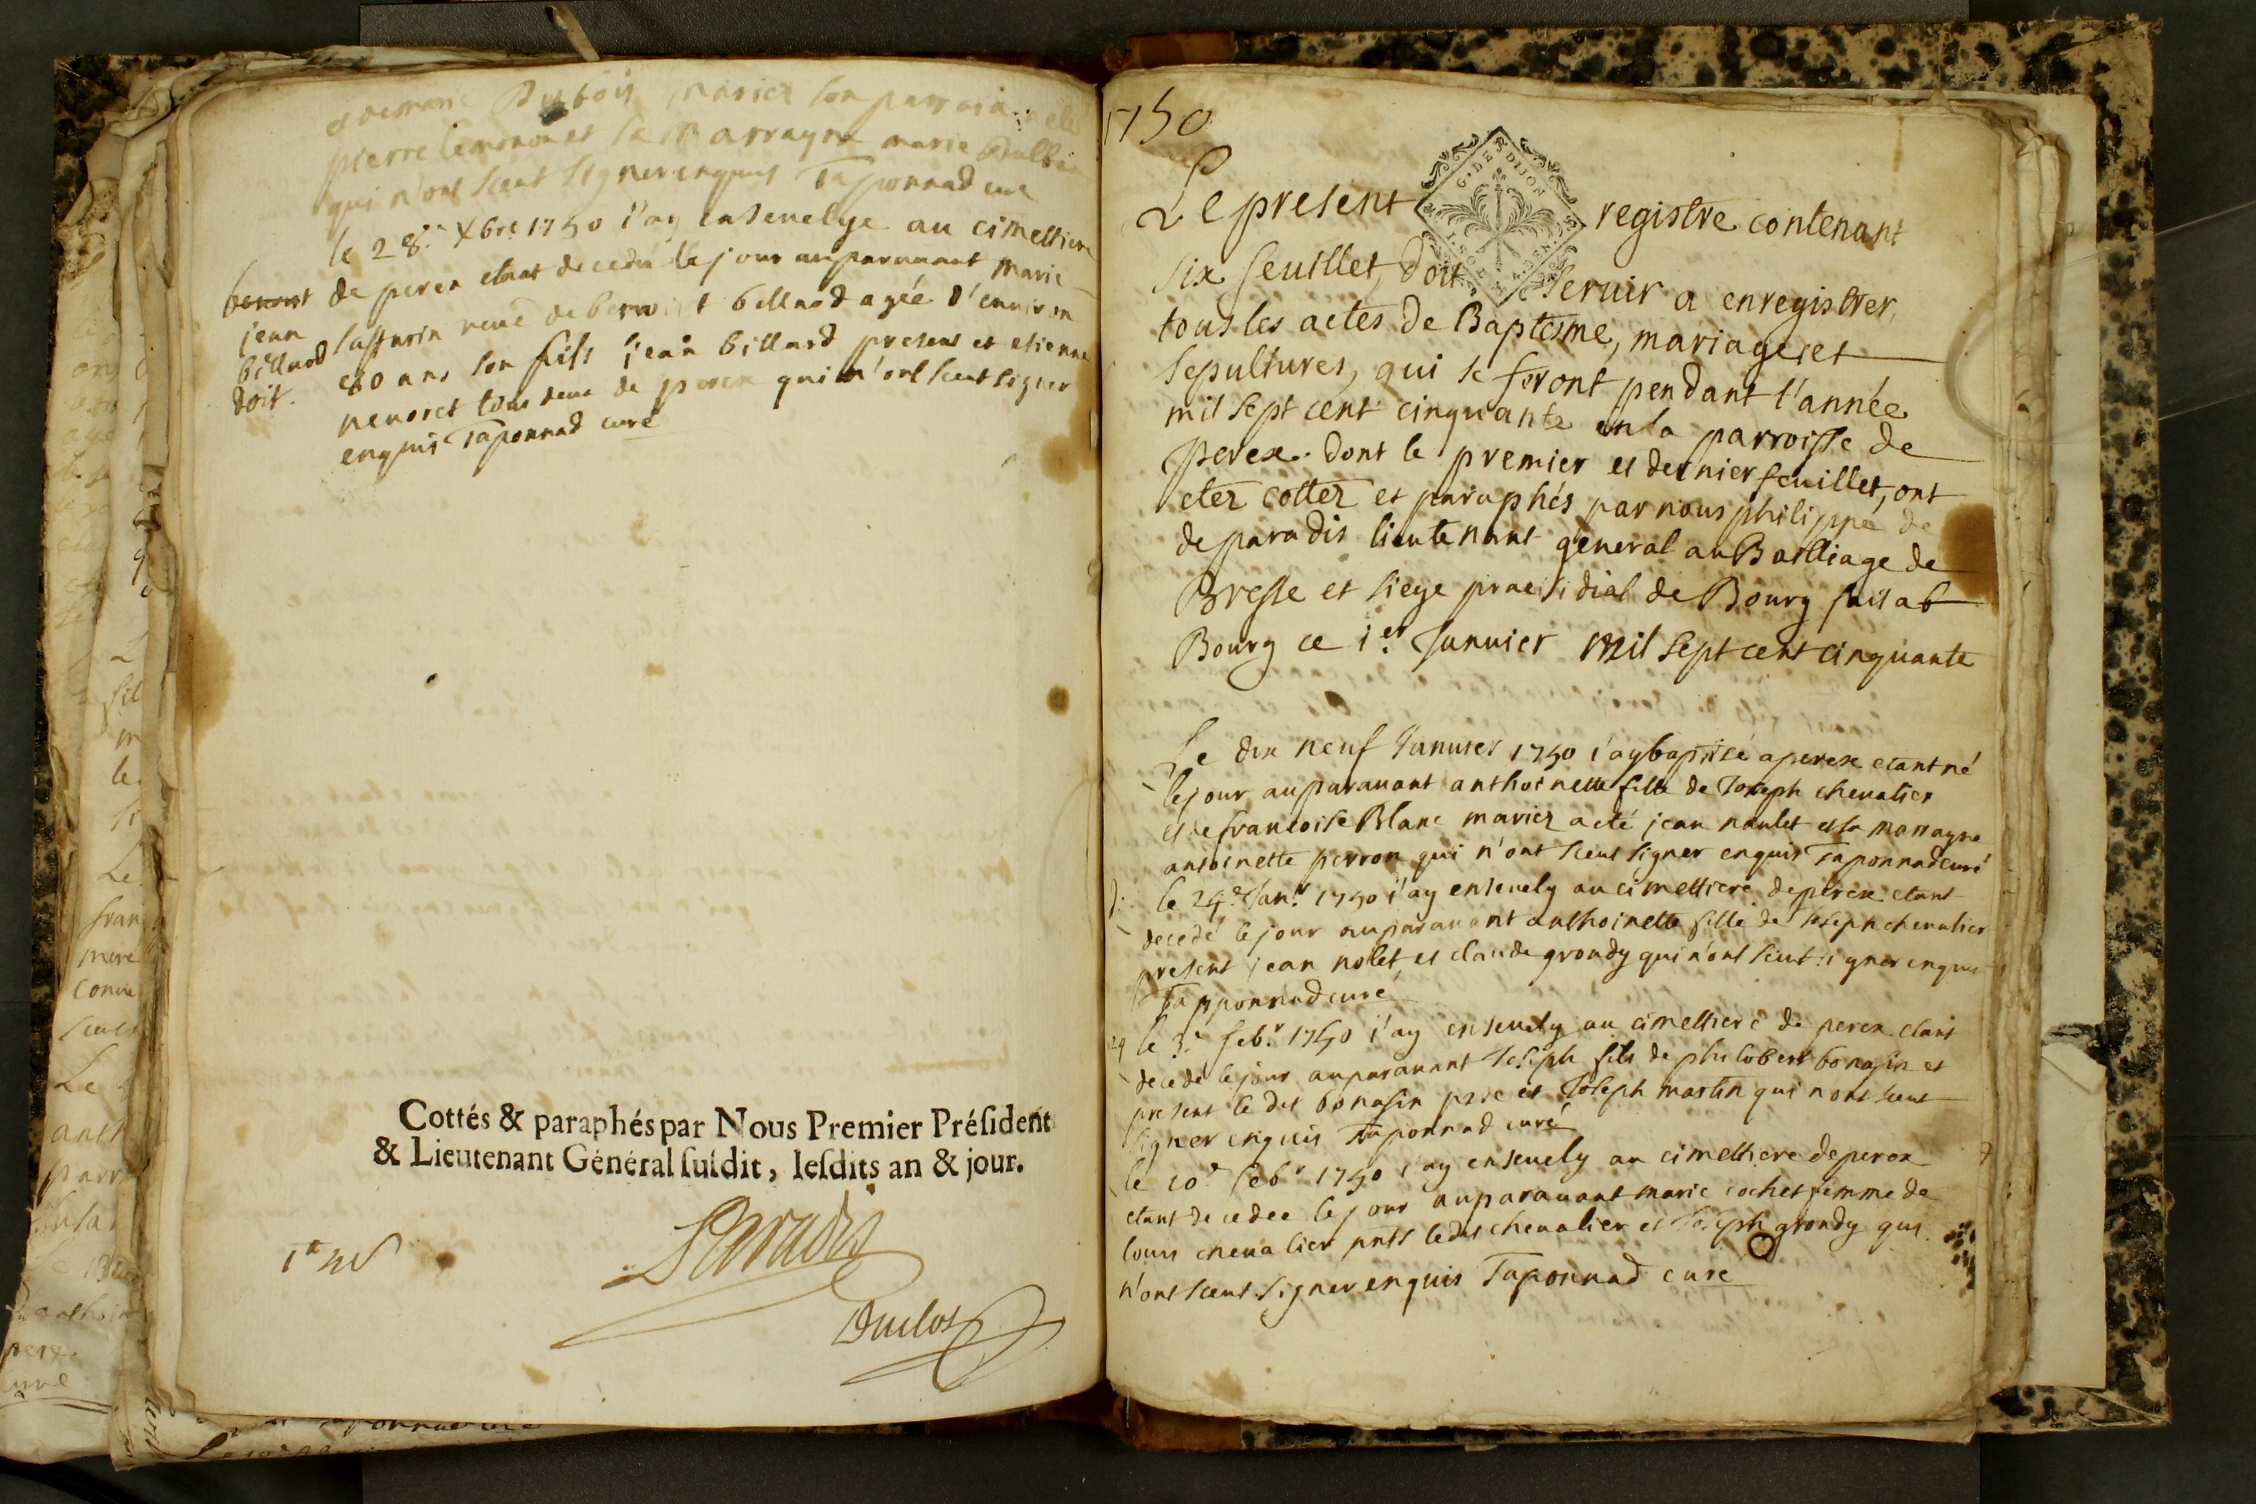 Dubois mariez son parrain
pierre et sa marrayne marie
qui n'ont sceut signer enquis Taponnad curé
le 28.e Xbre 1750 i'ay ensevelye au cimettiere
de perex etant decedú le jour auparavant Marie
veuve de benoist billiard agée d'environ
80 ans son fils jean billiard present et etienne
tous deux de perex qui n'ont sceut signer
enquis Taponnad curé
benoist
jean
billiard
doit.
Cottés & paraphés par Nous Premier Préſident
& Lieutenant Général ſuſdit, leſdits an & jour.
Paradis
Duclos
1750
G. DE DIJON
Le present registre contenant
six feuillet, doit servir a enregistrer,
tous les actes de Baptesme, mariages et
Sepultures, qui se feront pendant l'année
mil sept cent cinquante en la parroisse de
perex. Dont le premier et dernier feuillet, ont
etez cottez et paraphés par nous philippe de
de paradis lieutenant general au Bailliage de
Bresse et siege praesidial de Bourg fait ab
Bourg ce 1.er Janvier mil sept cent cinquante
Le dix neuf Janvier 1750 i'ay baptisé a perex etant né
le jour auparavant anthoinette fille de Joseph chevalier
et de francoise Blanc mariez a eté jean naulet et sa marrayne
antoinette perron qui n'ont sceut signer enquis Taponnad curé
le 24.e Jan.r 1750 i'ay ensevely au cimettiere de perex etant
decedé le jour auparavant anthoinette fille de Joseph chevalier
present jean nolet et claude grondy qui n'ont sceut signer enquis
Taponnad curé
le 3.e feb.r 1750 i'ay ensevely au cimettiere de perex etant
decedé le jour auparavant Joseph fils de philobert bonasin et
present le dit bonasin pere et Joseph martin qui n'ont sceut
signer enquis Taponnad curé
le 10.e feb.r 1750 i'ay ensevely au cimettiere de perex
etant decedee le jour auparavant marie cochet femme de
louis chevalier pnts ledit chevalier et Joseph grondy qui
n'ont sceut signer enquis Taponnad curé